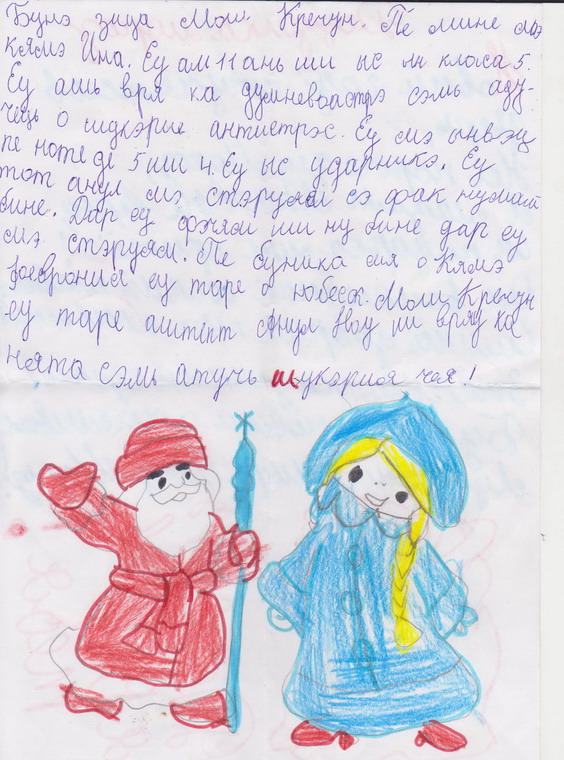 Бунэ зиуа Мош Кречун. Пе мине мэ
кямэ Ина. Еу ам 11 ань ши ыс ын класа 5.
Еу ашь вря ка думневоастрэ сэмь аду-
чець о шукэрие антистрэс. Еу мэ ынвэц
пе ноте де 5 ши 4. Еу ыс ударникэ. Еу
тот анул мэ стэруям сэ фак нумай
бине. Дар еу фэчям ши ну бине дар еу
мэ стэруям. Пе буника мя о кямэ
Феврония еу таре о юбеск. Мош Кречун
еу таре аштепт Анул Ноу ши вряу ка
ноята сэмь атучь шукэрия чея!